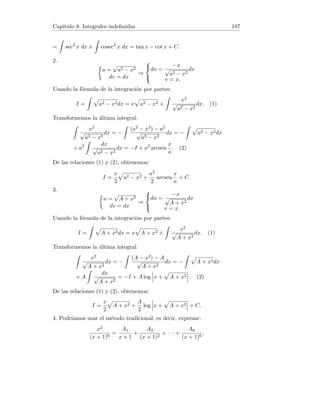 Capítulo 8. Integrales indefinidas 187
= ∫ sec² x dx + ∫ cosec² x dx = tan x − cot x + C.
2.
{ u = √(a² − x²)  dv = dx ⇒ { du = −x/√(a² − x²) dx  v = x.
Usando la fórmula de la integración por partes:
I = ∫ √(a² − x²)dx = x√(a² − x²) + ∫ x²/√(a² − x²) dx. (1)
Transformemos la última integral:
∫ x²/√(a² − x²) dx = − ∫ ((a² − x²) − a²)/√(a² − x²) dx = − ∫ √(a² − x²)dx
+ a² ∫ dx/√(a² − x²) dx = −I + a² arcsen x/a. (2)
De las relaciones (1) y (2), obtenemos:
I = x/2 √(a² − x²) + a²/2 arcsen x/a + C.
3.
{ u = √(A + x²)  dv = dx ⇒ { du = −x/√(A + x²) dx  v = x.
Usando la fórmula de la integración por partes:
I = ∫ √(A + x²)dx = x√(A + x²) + ∫ x²/√(A + x²) dx. (1)
Transformemos la última integral:
∫ x²/√(A + x²) dx = − ∫ ((A − x²) − A)/√(A + x²) dx = − ∫ √(A + x²)dx
+ A ∫ dx/√(A + x²) = −I + A log |x + √(A + x²)|. (2)
De las relaciones (1) y (2), obtenemos:
I = x/2 √(A + x²) + A/2 log |x + √(A + x²)| + C.
4. Podríamos usar el método tradicional, es decir, expresar:
x²/(x + 1)⁶ = A₁/(x + 1) + A₂/(x + 1)² + · · · + A₆/(x + 1)⁶,